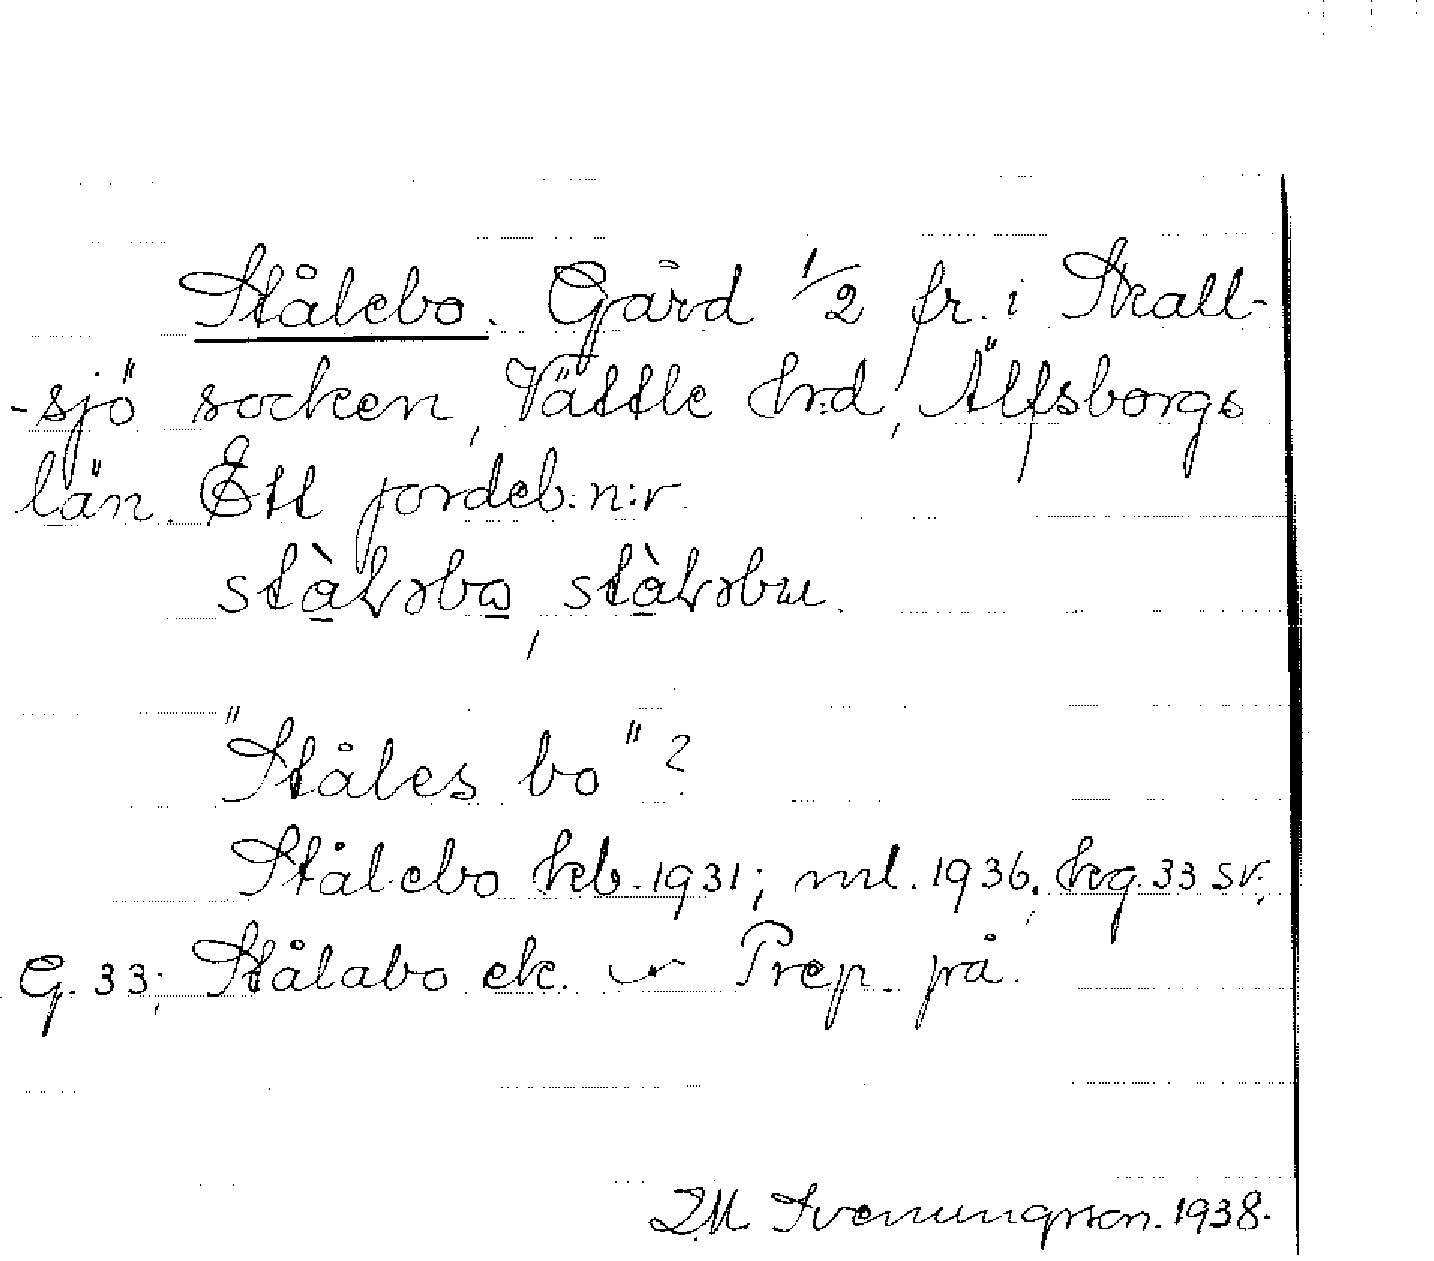 Stålebo. Gård 1/2 fr. i Skall-
-sjö socken, Vättle hrd, Älfsborgs
län. Ett jordeb. n:r.
"Ståles bo"?
Stålebo kb. 1931; ml. 1936, hvg. 33 sv.
G. 33; Stålabo ek. Prep. på.
Svenungsson. 1938.